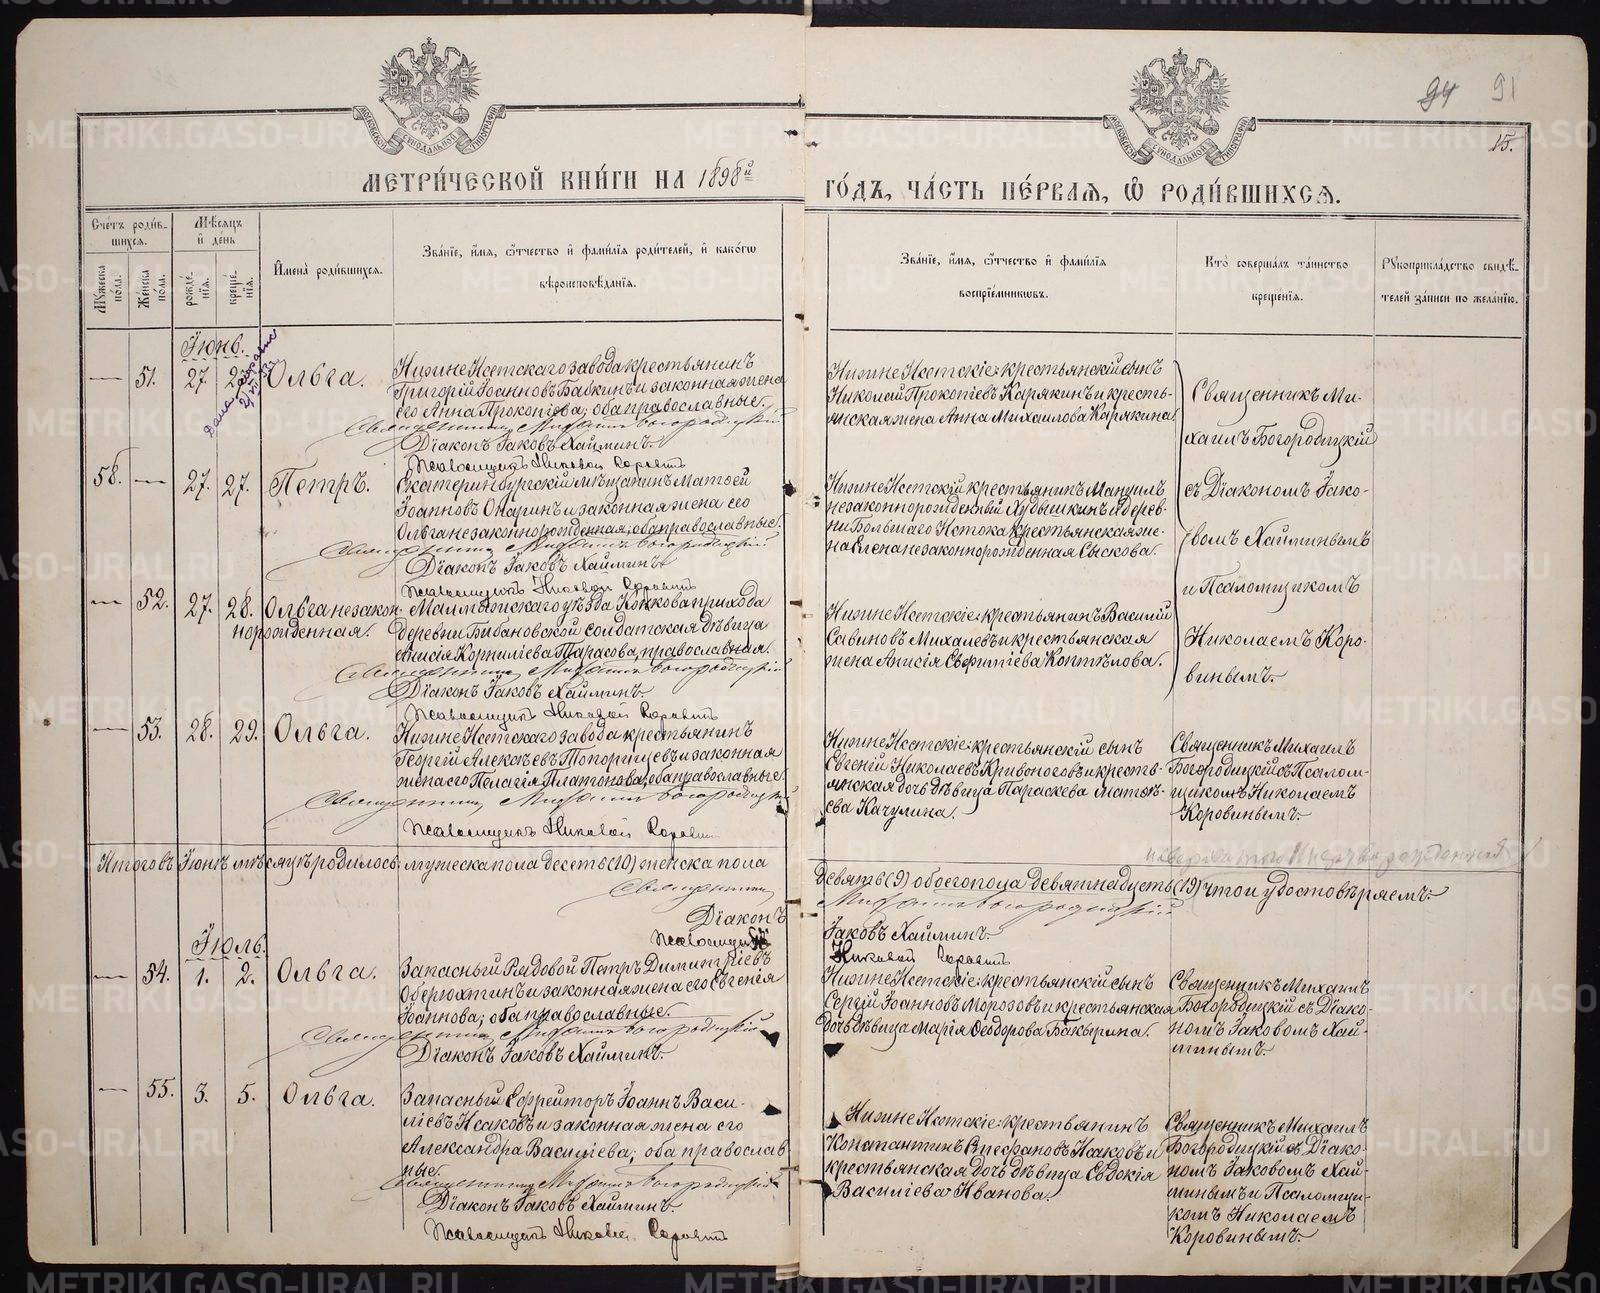 94 91
15.
МЕТРИ́ЧЕСКОЙ КНИ́ГИ НА 1898й ГО́ДЪ, ЧА́СТЬ ПЕ́РВАЯ, Ѡ РОДИ́ВШИХСЯ.
Сче́тъ роди́в-
шихся.
Мѣ́сяцъ
и̂ де́нь
Му́жеска
по́ла.
Же́нска
по́ла.
рожде́-
нїя.
креще́-
нїя.
И̂мена̀ роди́вшихся.
Зва́нїе, и̂мя, ѻ҆́тчество и̂ фами́лїя роди́телей, и̂ како́гѡ
вѣроисповѣ́данїя.
Зва́нїе, и̂мя, ѻ҆́тчество и̂ фами́лїя
воспрїе́мниковъ.
Кто̀ соверша́лъ та́инство
креще́нїя.
Рꙋкоприкла́дство свидѣ́-
телей за́писи по жела́нїю.
Іюнь.
51. 27. Ольга.
Нижне Исетскаго завода крестьянинъ
Григорій Іоанновъ Бабкинъ и законная жена
его Анна Прокопіева; оба православные.
Священникъ Михаилъ Богородицкій
Діаконъ Іаковъ Хайминъ.
Псаломщикъ Николай Коровинъ
Нижне Исетскіе: крестьянскій сынъ
Николай Прокопіевъ Карякинъ и кресть-
янская жена Анна Михаилова Карякина.
Священникъ Ми-
хаилъ Богородицкій
съ Діакономъ Іако-
вомъ Хайминымъ
и Псаломщикомъ
Николаемъ Коро-
винымъ.
58. 27. 27. Петръ.
Екатеринбургскій мѣщанинъ Матѳей
Іоанновъ Опаринъ и законная жена его
Ольга незаконнорожденная; оба православные.
Священникъ Михаилъ Богородицкій
Діаконъ Іаковъ Хайминъ.
Псаломщикъ Николай Коровинъ
Нижне Исетскій крестьянинъ Мануилъ
незаконнорожденный Худышкинъ и дерев-
ни Большаго Истока крестьянская же-
на Елена незаконнорожденная Сыскова.
52. 27. 28. Ольга незакон-
норожденная.
Малмыжскаго уѣзда Кокова прихода
деревни Бибановской солдатская дѣвица
Анисія Корниліева Тарасова, православная.
Священникъ Михаилъ Богородицкій
Діаконъ Іаковъ Хайминъ.
Псаломщикъ Николай Коровинъ
Нижне Исетскіе: крестьянинъ Василій
Савиновъ Михалевъ и крестьянская
жена Анисія Евфиміева Коптѣлова.
53. 28. 29. Ольга.
Нижне Исетскаго завода крестьянинъ
Георгій Алексѣевъ Топорищевъ и законная
жена его Пелагія Платонова; оба православные.
Священникъ Михаилъ Богородицкій
Псаломщикъ Николай Коровинъ
Нижне Исетскіе: крестьянскій сынъ
Евгеній Николаевъ Кривоноговъ и кресть-
янская дочь дѣвица Параскева Матѳѣ-
ева Качулина.
Священникъ Михаилъ
Богородицкій съ Псалом-
щикомъ Николаемъ
Коровинымъ.
Итого въ Іюнѣ мѣсяцѣ родилось: мужеска пола десять (10) женска пола
девять (9) обоего пола девятнадцать (19) что и удостовѣряемъ:
Священникъ Михаилъ Богородицкій
Діаконъ Іаковъ Хайминъ.
Псаломщикъ Николай Коровинъ
Іюль.
54. 1. 2. Ольга.
Запасный Рядовой Петръ Димитріевъ
Оберюхтинъ и законная жена его Евгенія
Іоаннова; оба православные.
Священникъ Михаилъ Богородицкій
Діаконъ Іаковъ Хайминъ.
Нижне Исетскіе: крестьянскій сынъ
Сергій Іоанновъ Морозовъ и крестьянская
дочь дѣвица Марія Ѳеодорова Бакырина.
Священникъ Михаилъ
Богородицкій съ Діако-
номъ Іаковомъ Хай-
минымъ.
55. 3. 5. Ольга.
Запасный Ефрейторъ Іоаннъ Васи-
ліевъ Исаковъ и законная жена его
Александра Василіева; оба православ-
ные.
Священникъ Михаилъ Богородицкій
Діаконъ Іаковъ Хайминъ.
Псаломщикъ Николай Коровинъ
Нижне Исетскіе: крестьянинъ
Константинъ Стефановъ Исаковъ и
крестьянская дочь дѣвица Евдокія
Василіева Иванова.
Священникъ Михаилъ
Богородицкій съ Діако-
номъ Іаковомъ Хай-
минымъ и Псаломщи-
комъ Николаемъ
Коровинымъ.
METRIKI.GASO-URAL.RU